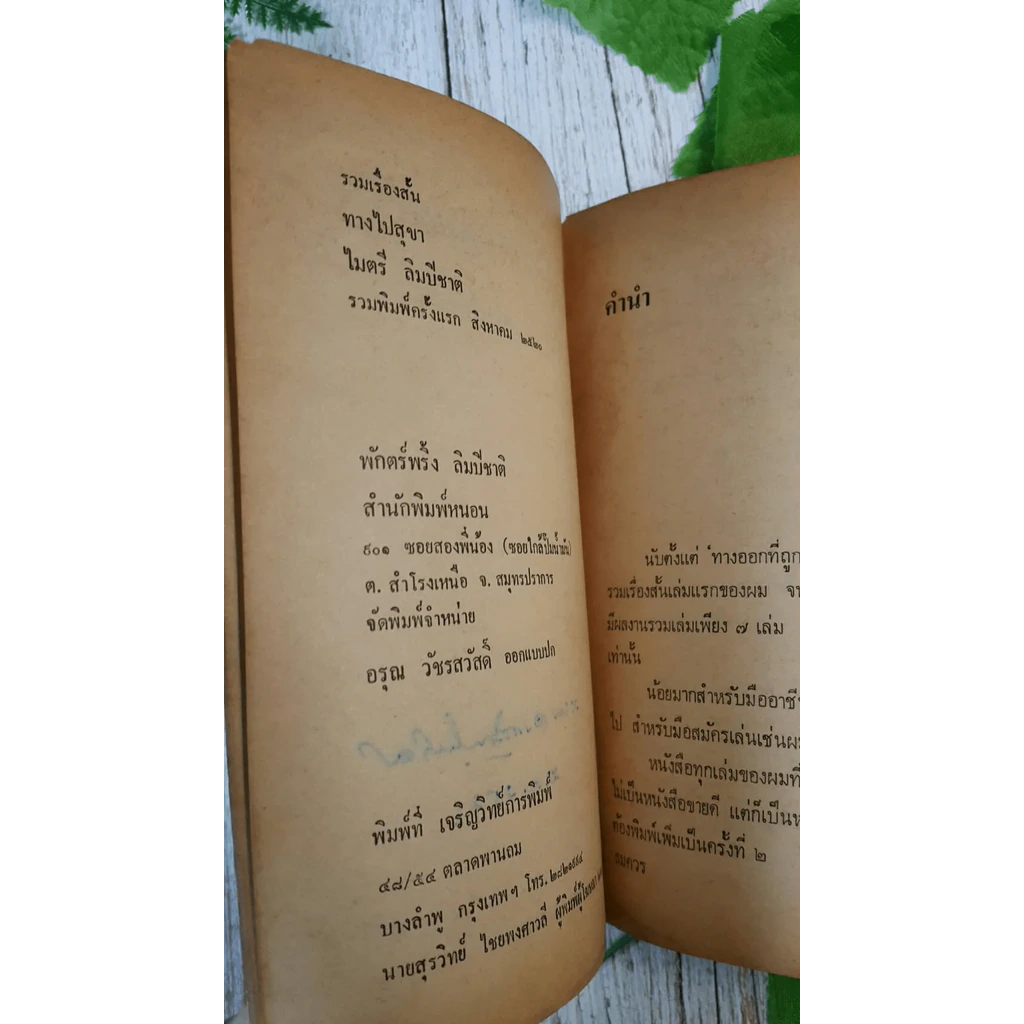 รวมเรื่องสั้น
ทางไปสุขา
ไมตรี ลิมปิชาติ
รวมพิมพ์ครั้งแรก สิงหาคม ๒๕๒๐
พักตร์พริ้ง ลิมปิชาติ
สำนักพิมพ์หนอน
๙๐๑ ซอยสองพี่น้อง (ซอยใกล้ปั๊มน้ำมัน)
ต. สำโรงเหนือ จ. สมุทรปราการ
จัดพิมพ์จำหน่าย
อรุณ วัชรสวัสดิ์ ออกแบบปก
พิมพ์ที่ เจริญวิทย์การพิมพ์
๔๘/๕๔ ตลาดพานถม
บางลำพู กรุงเทพฯ โทร.
นายสุรวิทย์ ไชยพงศาวลี ผู้พิมพ์ผู้โฆษณา
คำนำ
นับตั้งแต่ "ทางออกที่ถูก
รวมเรื่องสั้นเล่มแรกของผม
มีผลงานรวมเล่มเพียง ๗ เล่ม
เท่านั้น
น้อยมากสำหรับมืออาชีพ
ไป สำหรับมือสมัครเล่นเช่นผม
หนังสือทุกเล่มของผมที่
ไม่เป็นหนังสือขายดี แต่ก็เป็น
ต้องพิมพ์เพิ่มเป็นครั้งที่ ๒
สมควร